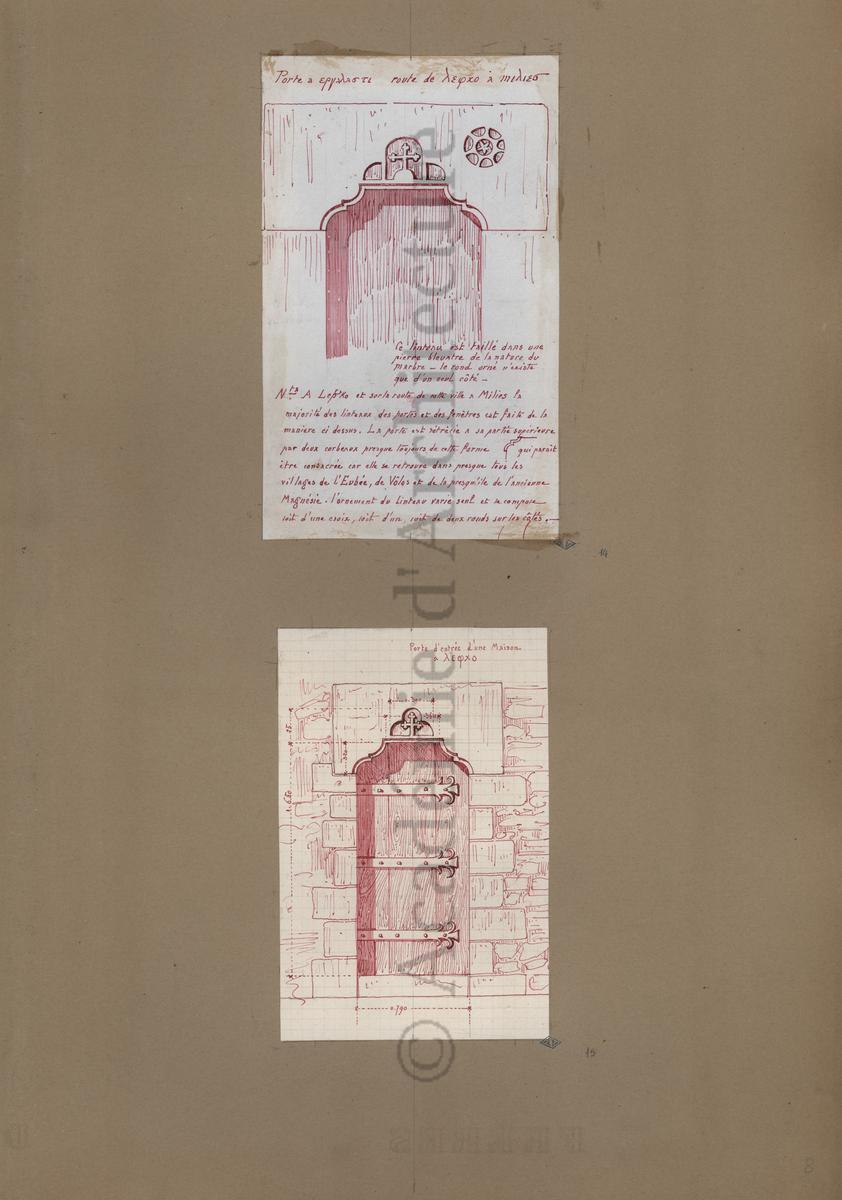 Porte a εργαλαστι route de λεφκο à μιλιεσ
Ce linteau est taillé dans une
pierre bleuatre de la nature du
marbre – le rond orné n'existe
que d'un seul côté –
Nta A Lefko et sur la route de cette ville a Miliès la
majorité des linteaux des portes et des fenêtres est faite de la
manière ci dessus. La porte est rétrécie a sa partie supérieure
par deux corbeaux presque toujours de cette forme qui parait
être consacrée car elle se retrouve dans presque tous les
villages de l'Eubée, de Vôlos et de la presqu'île de l'ancienne
Magnésie. l'ornement du linteau varie seul et se compose
soit d'une croix, soit d'un, soit de deux ronds sur les côtés.
14
Porte d'entrée d'une Maison
a λεφκο
0.790
15
8
© Academie d'Architecture